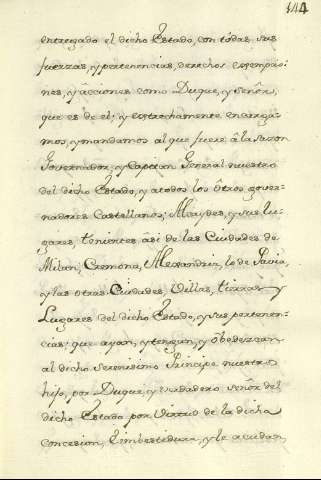 144
entregado el dicho Estado, con todas sus
fuerzas, y pertenencias, derechos exempcio-
nes, y âcciones como Duque, y Señor,
que es de el; y estrechamente encarga-
mos, y mandamos al que fuere â la sazon
Governador, y Capitan General nuestro
del dicho Estado, y atodos los ôtros gover-
nadores Castellanos; Alcaydes, y sus lu-
gares, tenientes, âsi de las Ciudades de
Milan, Cremona, Alexandria, lo de Pavia,
y las otras Ciudades, Villas, tierras y
Lugares del dicho Estado, y sus pertenen-
cias; que ayan, y tengan, y ôbedezcan
al dicho serenisimo Principe nuestro
hijo, por Duque, y verdadero señor del
dicho Estado por virtud de la dicha
concesion, è imbestidura, y le acudan,